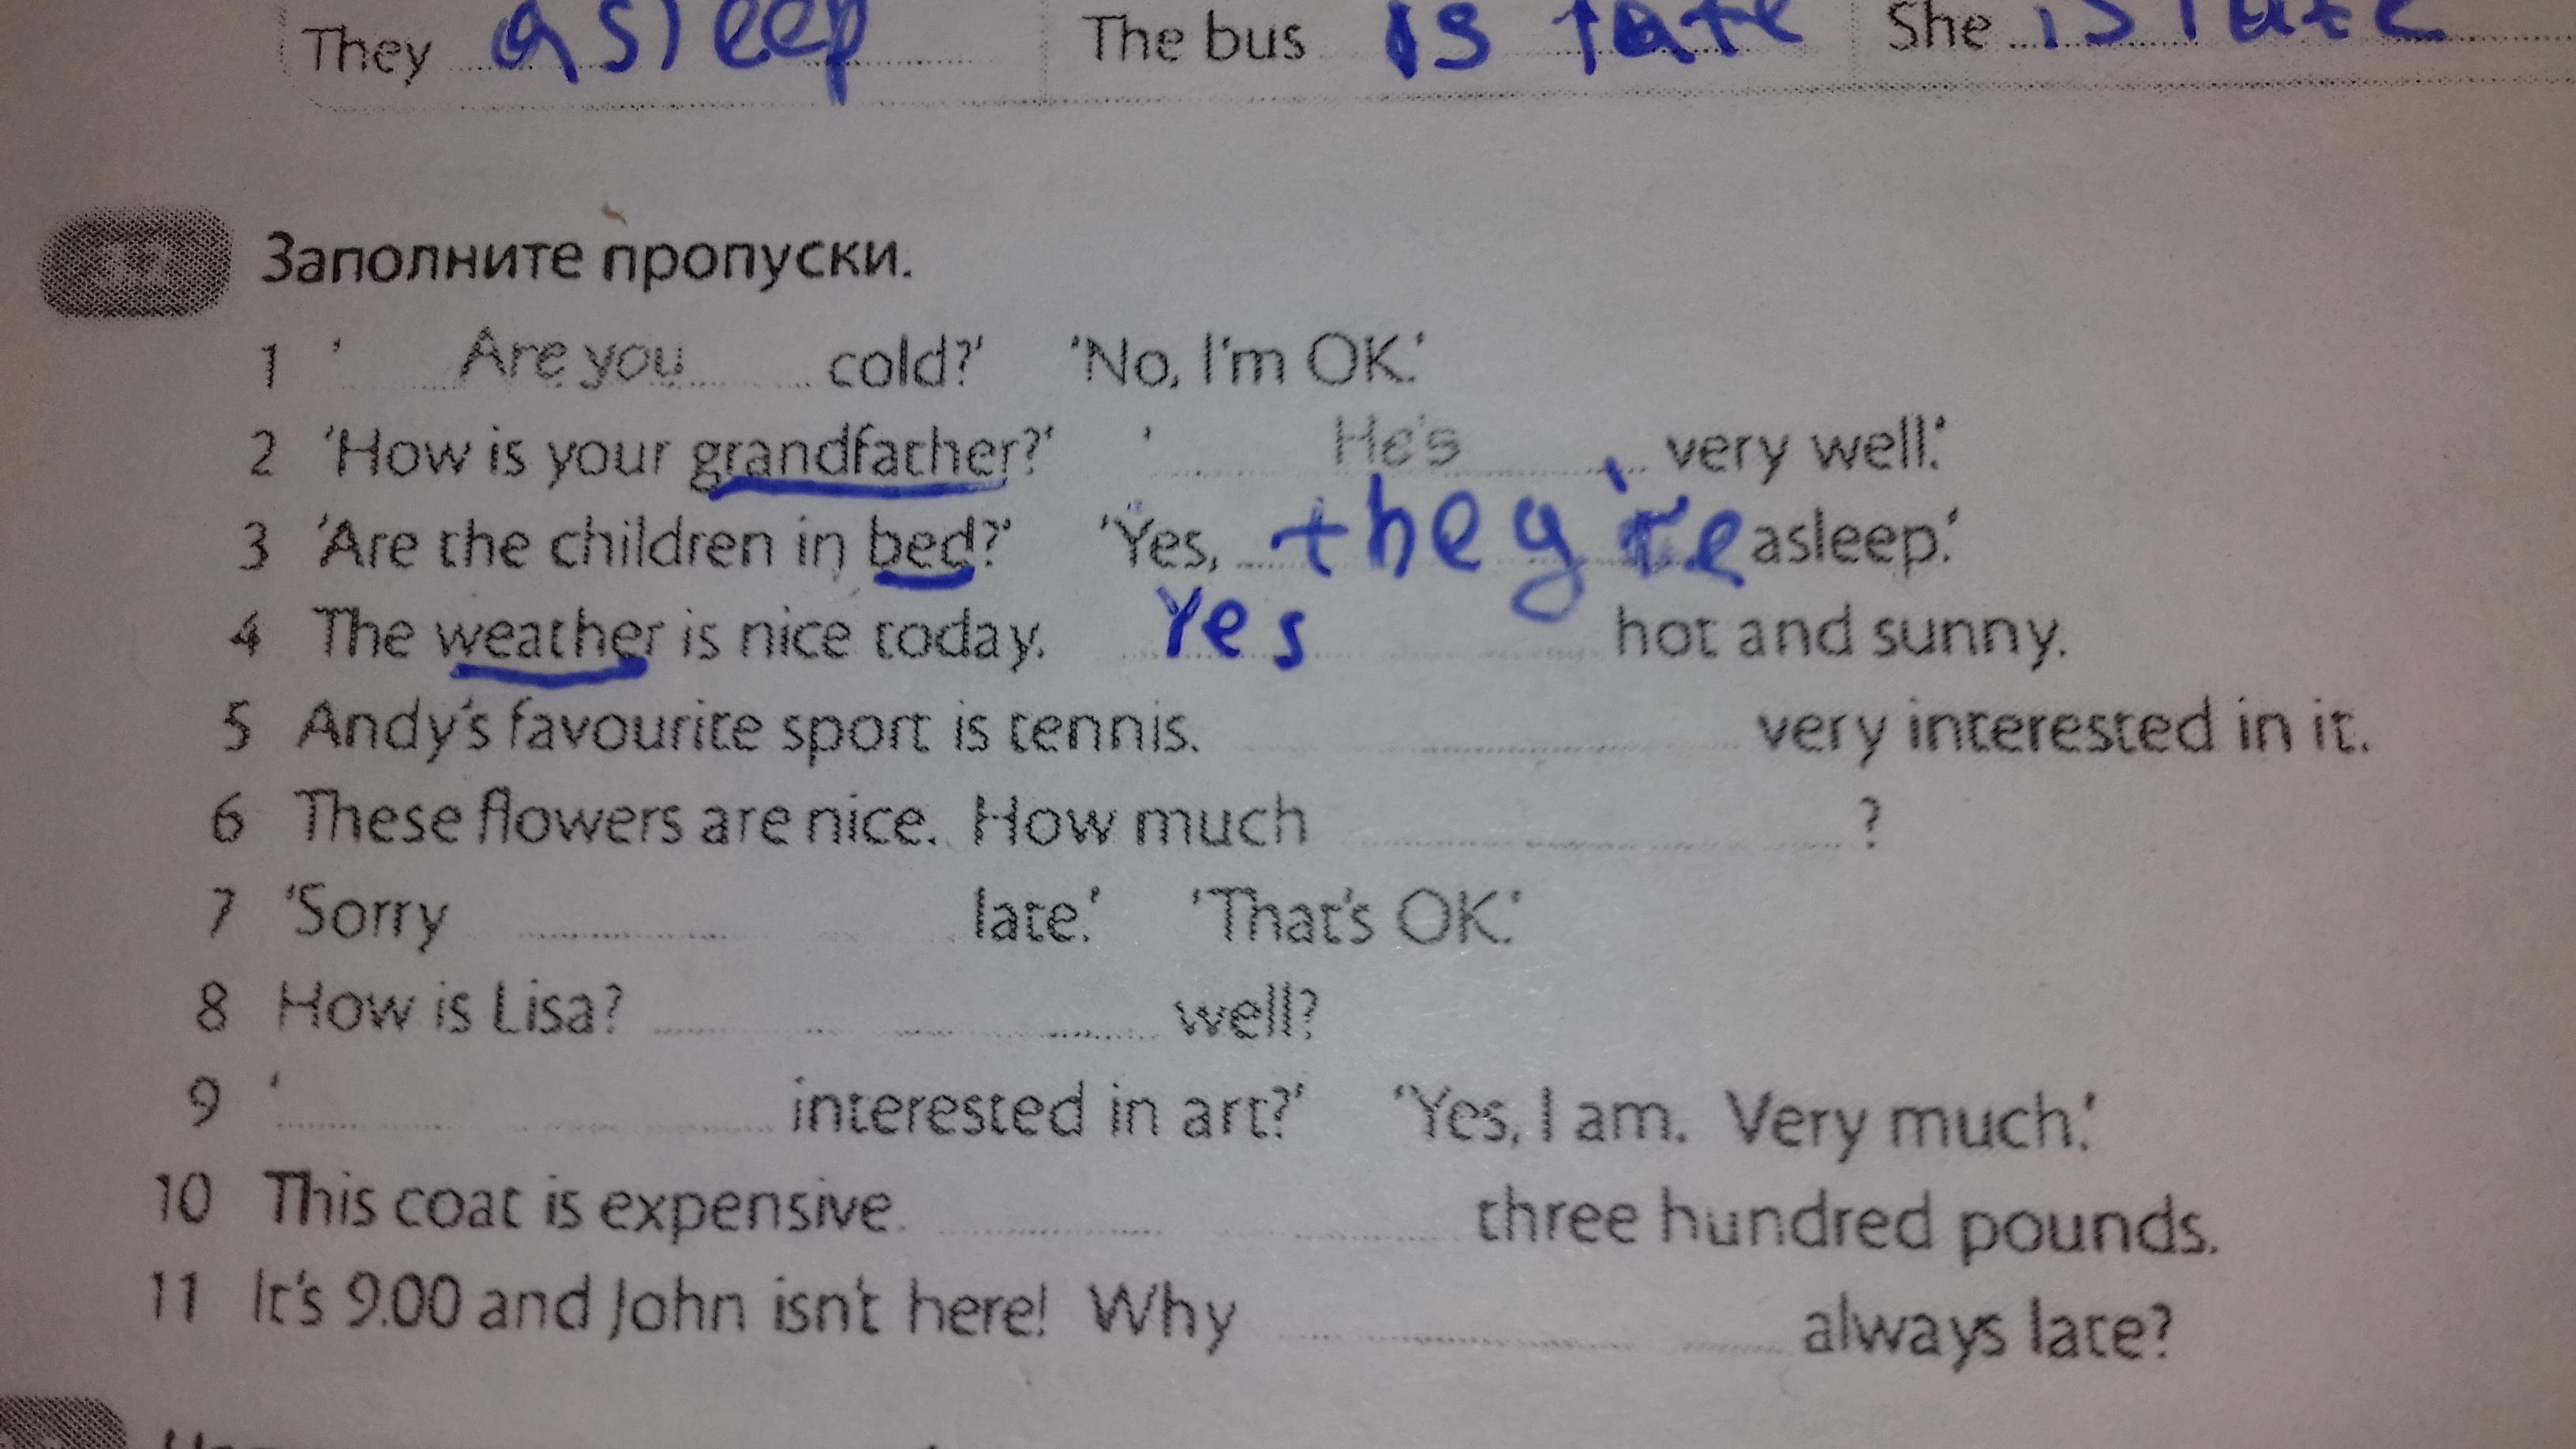 They asleep The bus is late She is late
Заполните пропуски.
1 ' Are you cold?' 'No, I'm OK.'
2 'How is your grandfather?' ' He's very well.'
3 'Are the children in bed?' 'Yes, they're asleep.'
4 The weather is nice today. Yes hot and sunny.
5 Andy's favourite sport is tennis. very interested in it.
6 These flowers are nice. How much ?
7 'Sorry late.' 'That's OK.'
8 How is Lisa? well?
9 ' interested in art?' 'Yes, I am. Very much.'
10 This coat is expensive. three hundred pounds.
11 It's 9.00 and John isn't here! Why always late?